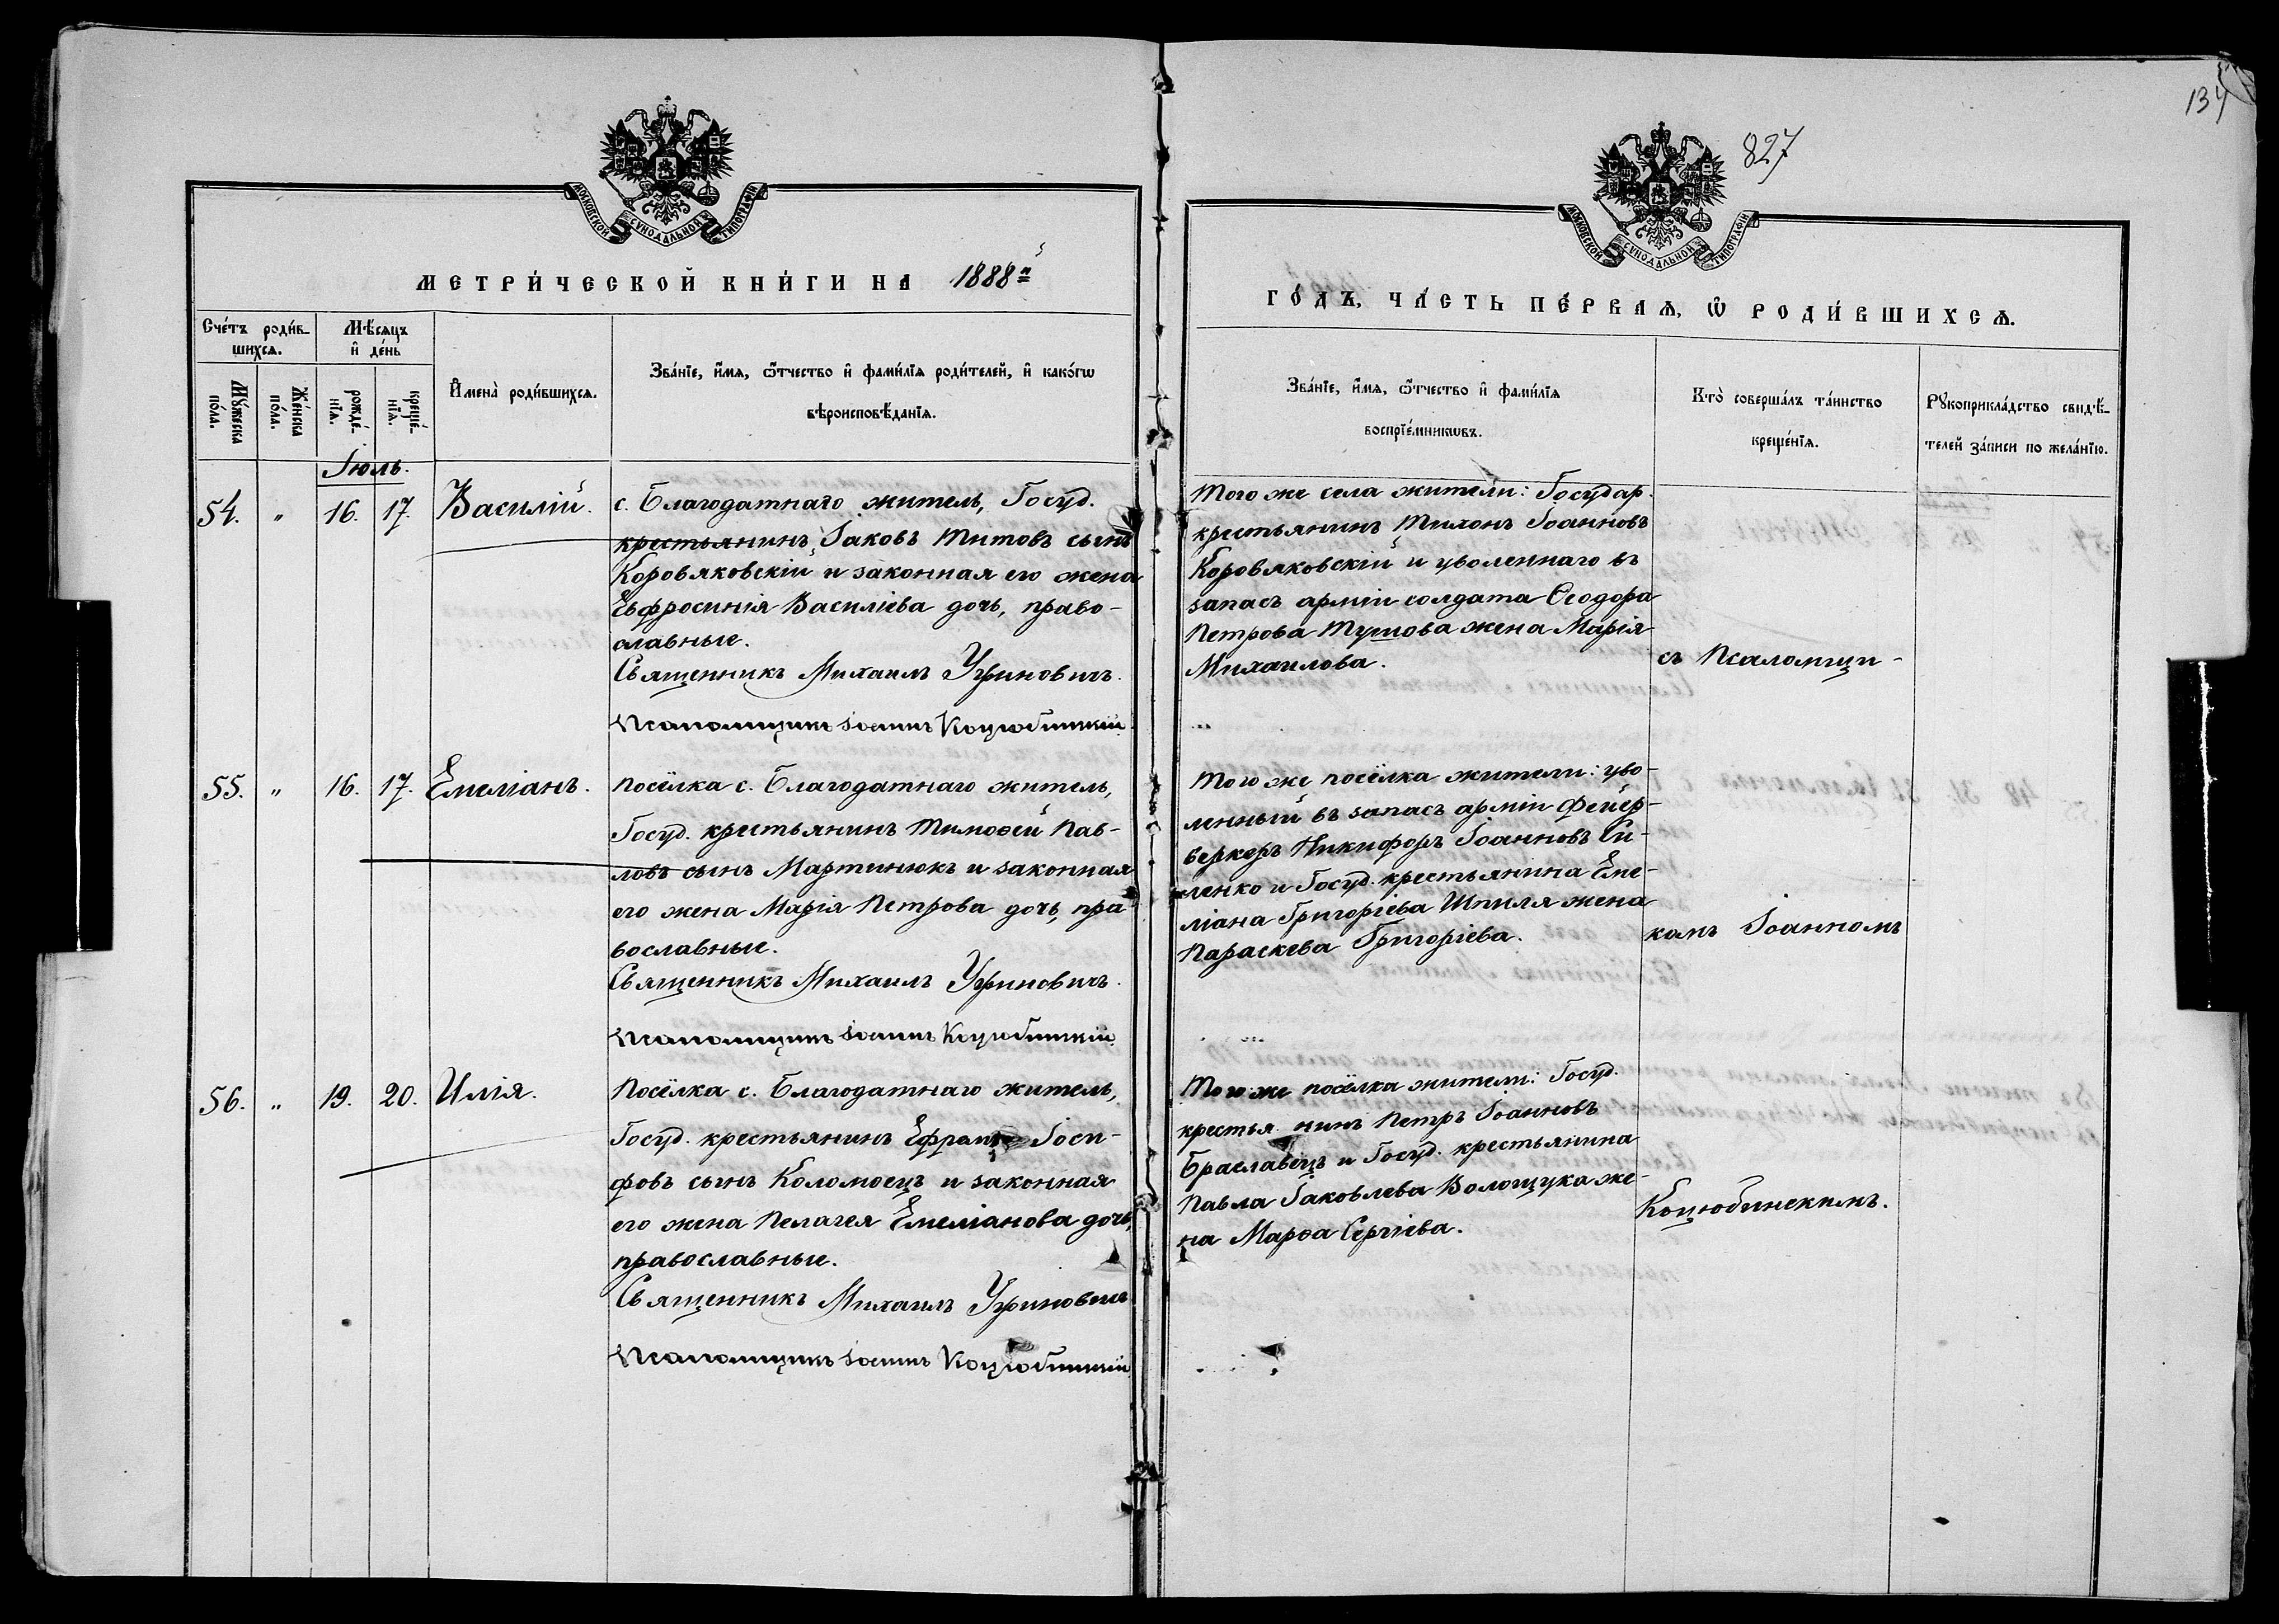 134
827
МОСКОВСКОЙ СѴНОДАЛЬНОЙ ТИПОГРАФІИ
МОСКОВСКОЙ СѴНОДАЛЬНОЙ ТИПОГРАФІИ
МЕТРИ́ЧЕСКОЙ КНИ́ГИ НА 1888й
ГО́ДЪ, ЧА́СТЬ ПЕ́РВАѦ, Ѡ҆ РОДИ́ВШИХСѦ.
Сче́тъ роди́в-
шихсѧ.
Мѣ́сѧцъ
и҆ де́нь
Мꙋ́жеска
по́ла.
Же́нска
по́ла.
рожде́-
нїѧ.
креще́-
нїѧ.
И҆мена̀ роди́вшихсѧ.
Зва́нїе, и҆́мѧ, ѻ҆́тчество и҆ фами́лїѧ роди́телей, и҆ како́гѡ
вѣроисповѣ́данїѧ.
Зва́нїе, и҆́мѧ, ѻ҆́тчество и҆ фами́лїѧ
воспрїе́мникѡвъ.
Кто̀ соверша́лъ та́инство
креще́нїѧ.
Рꙋкоприкла́дство свидѣ́-
телей за́писи по жела́нїю.
Іюль.
54. " 16. 17. Василій.
с. Благодатнаго житель, Госуд.
крестьянинъ Іаковъ Титовъ сынъ
Коровяковскій и законная его жена
Евфросинія Василіева дочь, право-
славные.
Священникъ Михаилъ Угриновичъ.
Псаломщикъ Іоаннъ Коцюбинскій.
Того же села жители: Государ.
крестьянинъ Тихонъ Іоанновъ
Коровяковскій и уволеннаго въ
запасъ арміи солдата Ѳеодора
Петрова жена Марія
Михаилова.
съ Псаломщи-
55. " 16. 17. Емеліанъ.
Посёлка с. Благодатнаго житель,
Госуд. крестьянинъ Тимоѳей Пав-
ловъ сынъ Мартинюкъ и законная
его жена Марія Петрова дочь, пра-
вославные.
Священникъ Михаилъ Угриновичъ.
Псаломщикъ Іоаннъ Коцюбинскій.
Того же посёлка жители: уво-
ленный въ запасъ арміи фейер-
веркеръ Никифоръ Іоанновъ Си-
ленко и Госуд. крестьянина Еме-
ліана Григоріева Шпиля жена
Параскева Григоріева.
комъ Іоанномъ
56. " 19. 20. Илія.
Посёлка с. Благодатнаго житель,
Госуд. крестьянинъ Ефремъ Іоси-
фовъ сынъ Коломоецъ и законная
его жена Пелагея Емеліанова дочь,
православные.
Священникъ Михаилъ Угриновичъ
Псаломщикъ Іоаннъ Коцюбинскій
Того же посёлка жители: Госуд.
крестьянинъ Петръ Іоанновъ
Браславецъ и Госуд. крестьянина
Павла Іаковлева Волощука же-
на Марѳа Сергіева.
Коцюбинскимъ.